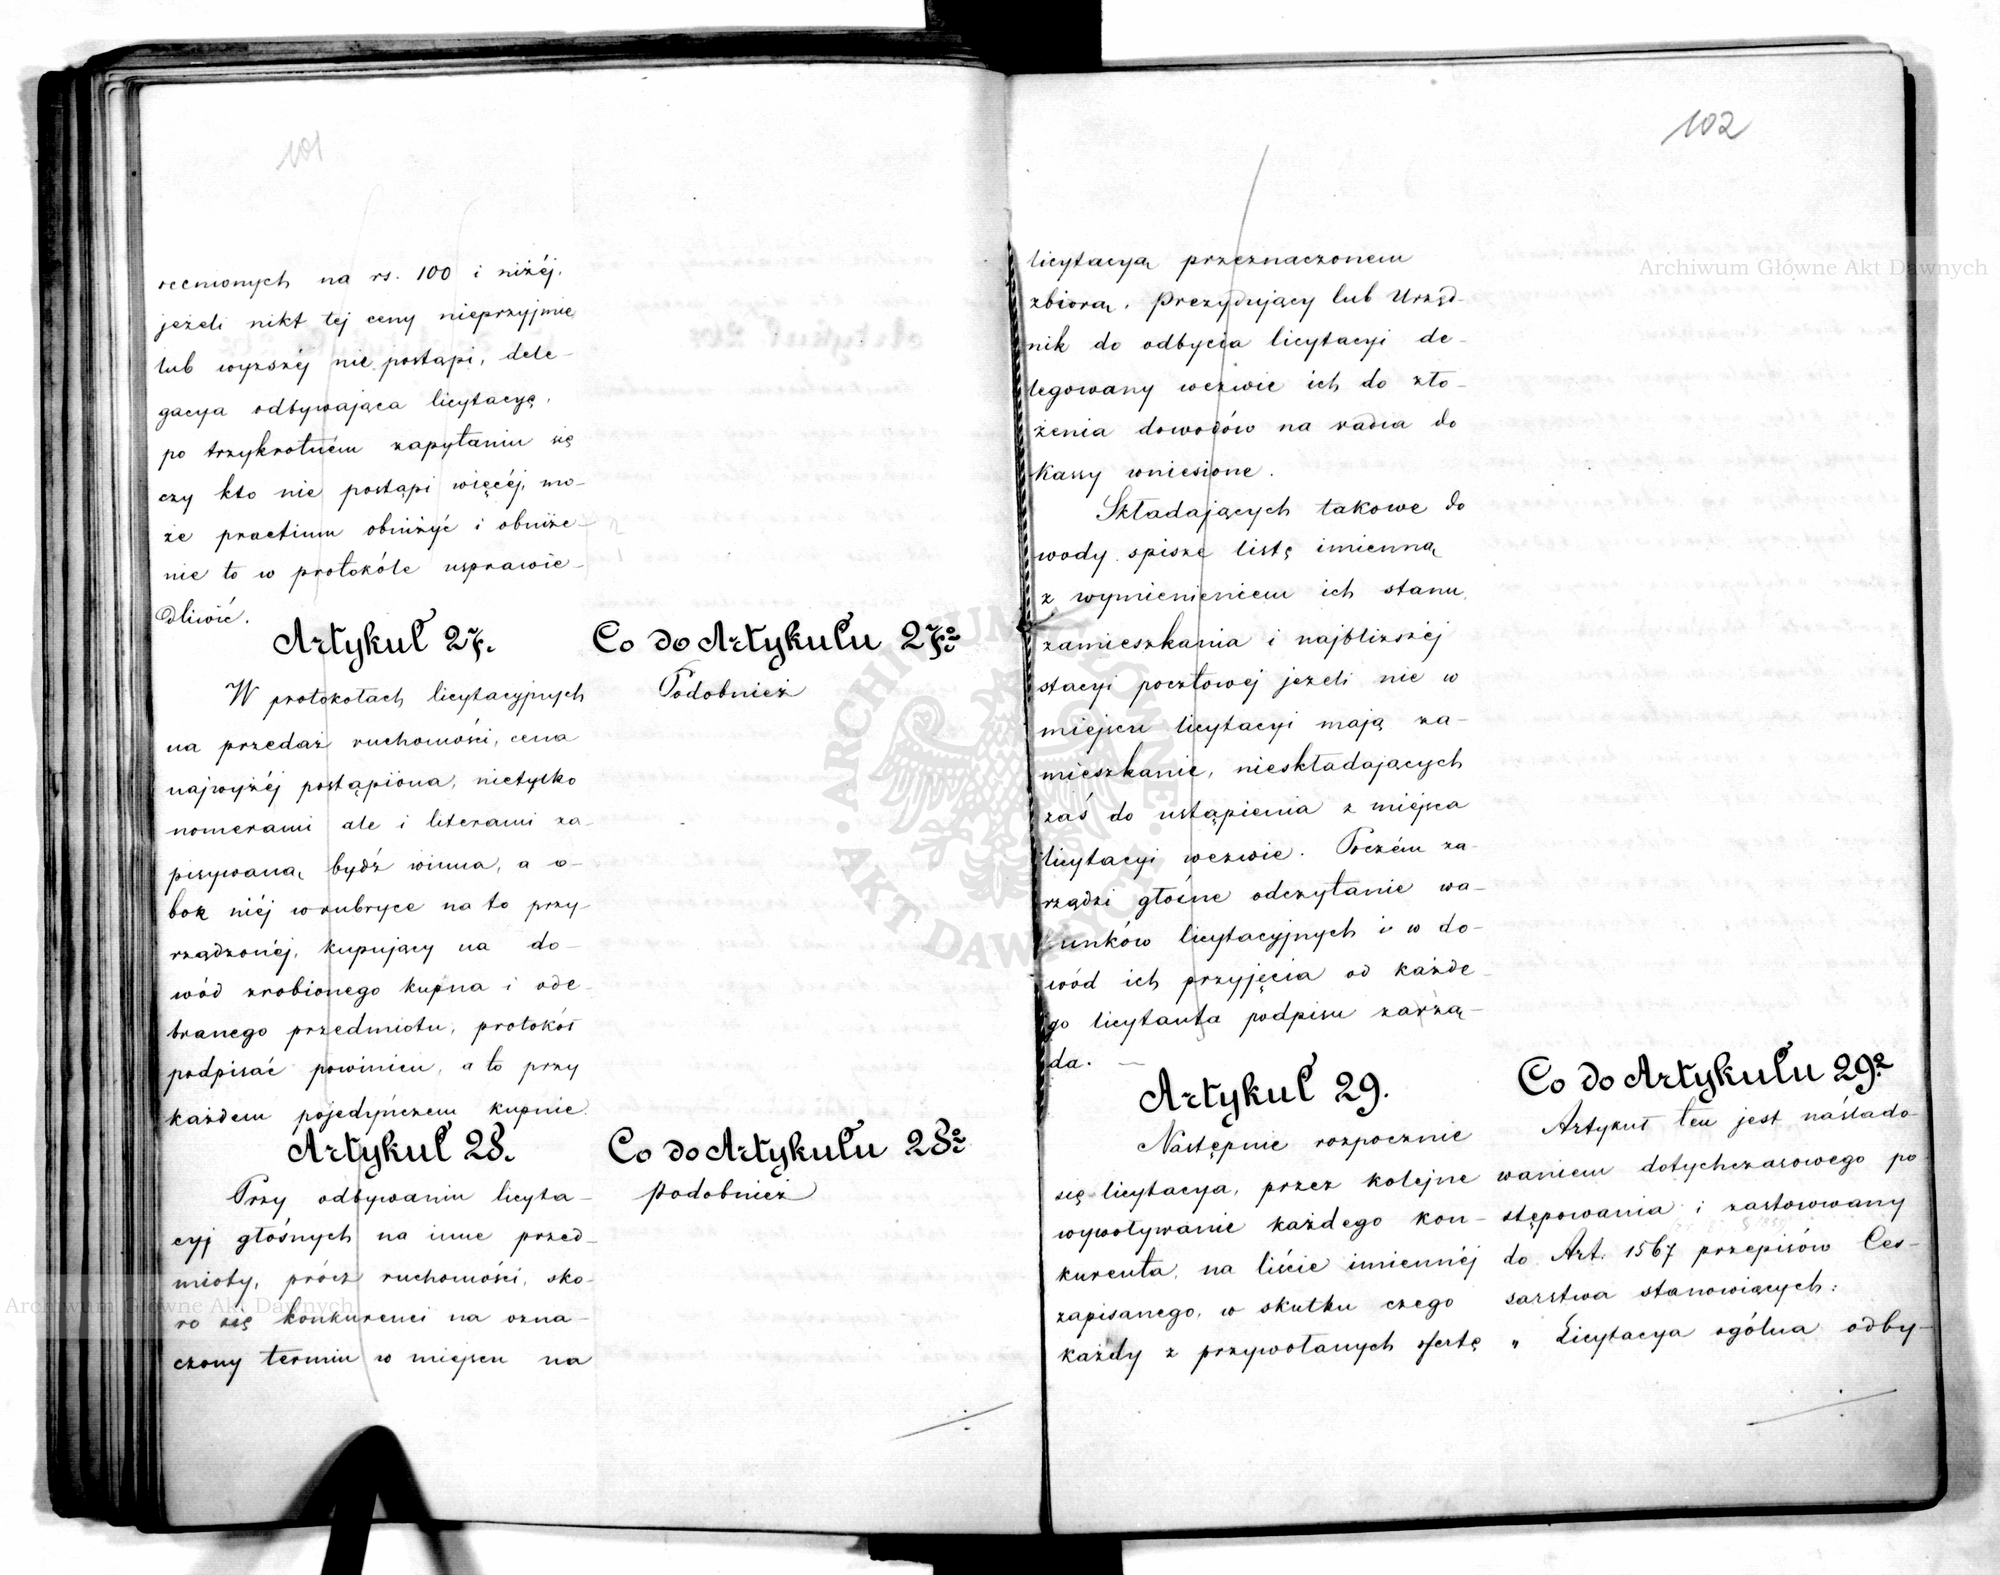 101
recnionych na rs. 100 i niżéj,
jeżeli nikt tej ceny nieprzyjmie
lub wyższéj nie postąpi, dele-
gacya odbywająca licytacyę,
po trzykrotném zapytaniu się
czy kto nie postąpi więcéj, mo-
że praetium obniżyć i obniże-
nie to w protokóle usprawie-
dliwić.
Artykuł 27.
W protokołach licytacyjnych
na przedaż ruchomości, cena
najwyżéj postąpiona, nietylko
nomerami ale i literami za-
pisywaną bydź winna, a o-
bok niéj w rubryce na to przy-
rządzonéj, kupujący na do-
wód zrobionego kupna i ode-
branego przedmiotu, protokół
podpisać powinien, a to przy
każdem pojedyńczem kupnie.
Co do Artykułu 27º
Podobnież
Artykuł 28.
Przy odbywaniu licyta-
cyj głośnych na inne przed-
mioty, prócz ruchomości, sko-
ro się konkurenci na ozna-
czony termin w miejscu na
Co do Artykułu 28º
podobnież
102
licytacyą przeznaczonem
zbiorą, Prezydujący lub Urzęd-
nik do odbycia licytacyi de-
legowany wezwie ich do zło-
żenia dowodów na vadia do
Kassy wniesione.
Składających takowe do
wody spisze listę imienną
z wymienieniem ich stanu,
zamieszkania i najbliższéj
stacyi pocztowej jeżeli nie w
miejscu licytacyi mają za-
mieszkanie, nieskładających
zaś do ustąpienia z miejsca
licytacyi wezwie. Poczém za-
rządzi głośne odczytanie wa-
runków licytacyjnych i w do-
wód ich przyjęcia od każde-
go licytanta podpisu zarżą-
da. —
Artykuł 29.
Następnie rozpocznie
się licytacya, przez kolejne
wywoływanie każdego kon-
kurenta, na liście imiennéj
zapisanego, w skutku czego
każdy z przywołanych ofertę
Co do Artykułu 29º
Artykuł ten jest naślado-
waniem dotychczasowego po-
stępowania i zastosowany
do Art. 1567 przepisów Ces-
sarstwa stanowiących:
„ Licytacya ogólna odby-
Archiwum Główne Akt Dawnych
Archiwum Główne Akt Dawnych
ARCHIWUM GŁÓWNE
AKT DAWNYCH